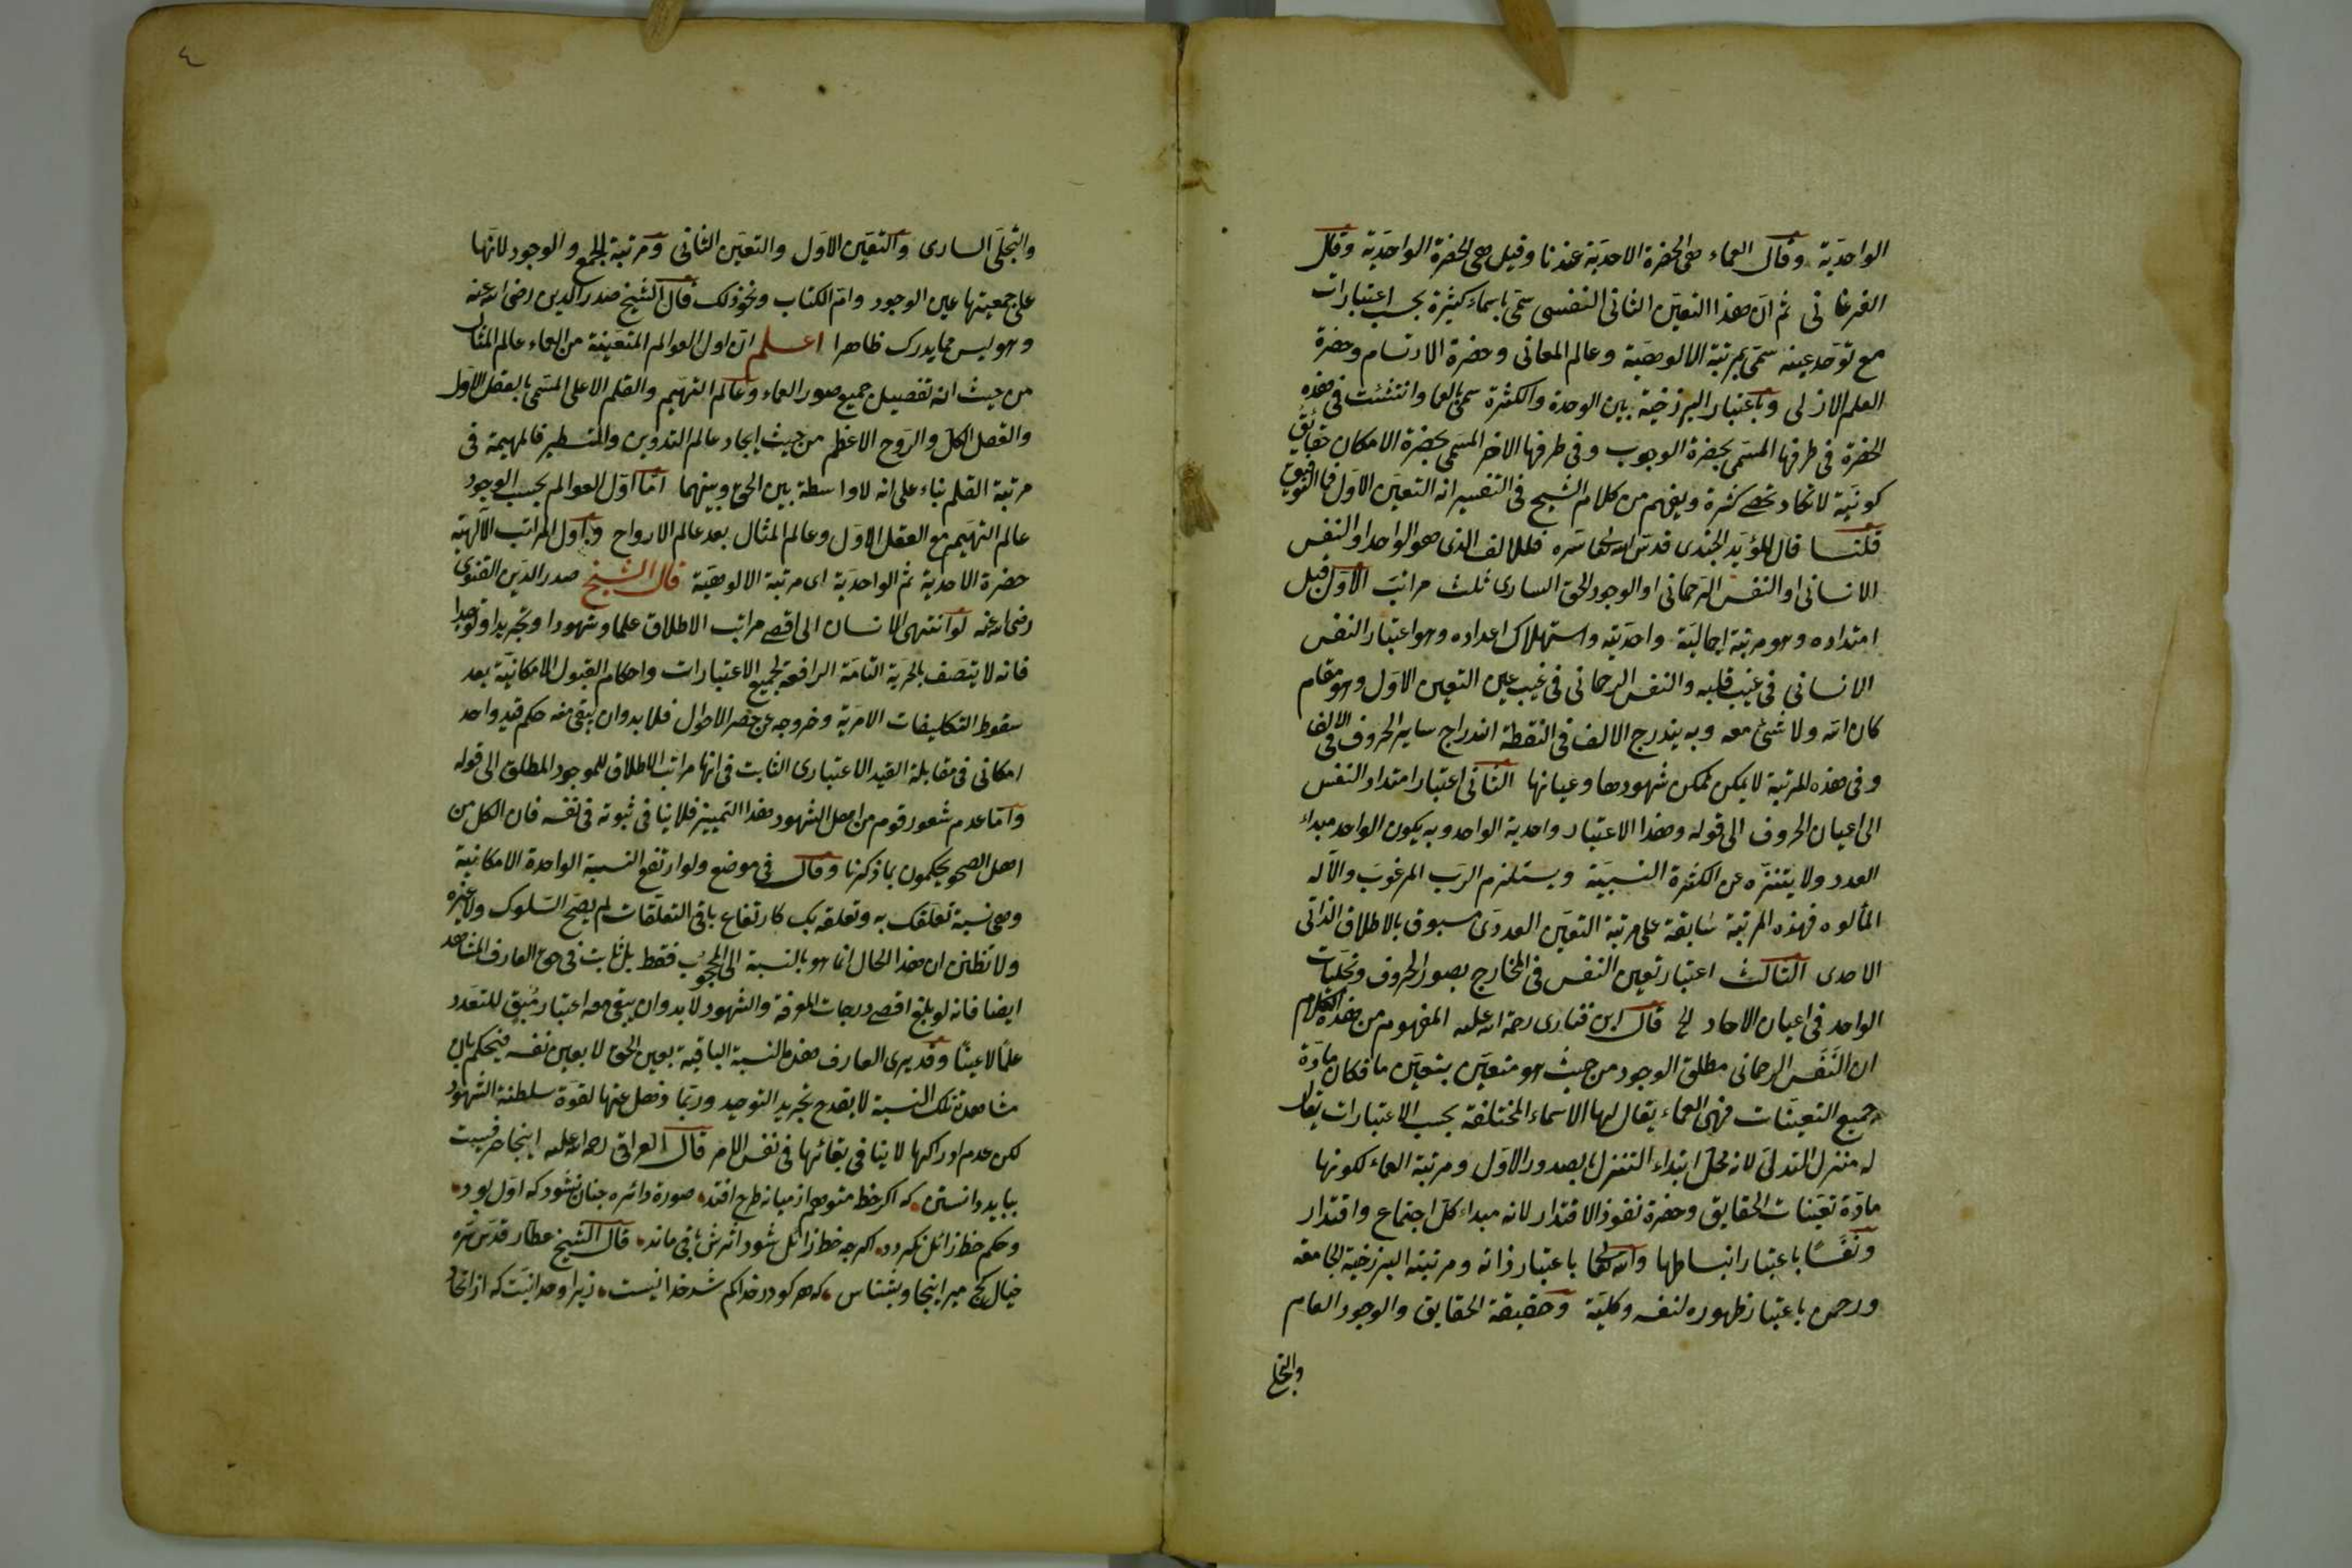 الواحديّة وقال العماء هى الحضرة الاحديّة عندنا وقيل هى الحضرة الواحديّة وقال
الفرغانى ثم انّ هذا التعيّن الثانى النفسى سمّى باسماء كثيرة بحسب اعتبارات
مع توحّد عينه سمّى بمرتبة الالوهيّة وعالم المعانى وحضرة الارتسام وحضرة
العلم الازلى وباعتبار البرزخية بين الوحدة والكثرة سمّى بالعما وانتشئت فى هذه
الحضرة فى طرفها المسمّى بحضرة الوجوب وفى طرفها الاخر المسمى بحضرة الامكان حقايق
كونيّة لا تكاد تحصى كثرة ويفهم من كلام الشيخ فى التفسير انه التعيّن الاول فما التوفيق
قلنا قال المؤيّد الجندى قدس الله تعالى سره فللالف الذى هو الواحد او النفس
الانسانى او النفس الرّحمانى او الوجود الحق السارى ثلث مراتب الاول قبل
امتداده وهو مرتبة اجماليّة واحديّته واستهلاك اعداده وهو اعتبار النفس
الانسانى فى غيب قلبه والنفس الرحمانى فى غيب عين التعين الاول وهو مقام
كان الله ولا شئ معه وبه يندرج الالف فى النقطة اندراج ساير الحروف فى الالف
وفى هذه المرتبة لا يمكن تمكن شهودها وعيانها الثانى اعتبار امتداد النفس
الى اعيان الحروف الى قوله وهذا الاعتبار واحدية الواحد وبه يكون الواحد مبداء
العدد ولا يتنزّه عن الكثرة النسبيّة ويستلزم الرّب المرغوب والآله
المألوه فهذه المرتبة سابقة على مرتبة التعيّن العددى مسبوق بالاطلاق الذاتى
الاحدى الثالث اعتبار تعين النفس فى المخارج بصور الحروف وتجليات
الواحد فى اعيان الاحاد الخ قال ابن فنارى رحمة الله عليه المفهوم من هذه الكلام
ان النّفَس الرحمانى مطلق الوجود من حيث هو متعيّن بتعيّن ما فكان مادة
جميع التعيّنات فهى العماء يقال لها الاسماء المختلفة بحسب الاعتبارات يقال
له منزل التدلّى لانه محل ابتداء التنزل بالصدور الاوّل ومرتبة العماء لكونها
مادّة تعيّنات الحقايق وحضرة نفوذ الاقتدار لانه مبداء كلّ اجتماع واقتدار
ونَفَسًا باعتبار انبساطها والله تعالى باعتبار ذاته ومرتبته البرزخية الجامعة
ورحمن باعتبار ظهوره لنفسه وكليّة وحقيقة الحقايق والوجود العام
والتجلى
٤
والتجلّى السارى والتعيّن الاوّل والتعيّن الثانى ومرتبة الجمع والوجود لانّها
على جمعيتها عين الوجود وامّ الكتاب ونحو ذلك قال الشيخ صدر الدين رضى الله عنه
وهو ليس مما يدرك ظاهرا اعلم ان اول العوالم المتعيّنة من العماء عالم المثال
من حيث انه تفصيل جميع صور العماء وعالم التهيّم والقلم الاعلى المسمّى بالعقل الاوّل
والعقل الكل والرّوح الاعظم من حيث ايجاد عالم التدوين والتسطير فالمهيمة فى
مرتبة القلم بناء على انه لا واسطة بين الحق وبينهما امّا اوّل العوالم بحسب الوجود
عالم التهيّم مع العقل الاوّل وعالم المثال بعد عالم الارواح واول المراتب الآلهيّة
حضرة الاحدية ثم الواحديّة اى مرتبة الالوهيّة قال الشيخ صدر الدّين القنوى
رضى الله عنه لو انتهى الانسان الى اقصى مراتب الاطلاق علما وشهودا وتجريدا وتوحيدا
فانه لا يتصف بالحريّة التامّة الرافعة لجميع الاعتبارات واحكام القبول الامكانيّة بعد
سقوط التكليفات الامريّة وخروجه عن حصر الاحوال فلا بد وان يبقى معه حكم قيد واحد
امكانى فى مقابلة القيد الاعتبارى الثابت فى انها مراتب الاطلاق للموجود المطلق الى قوله
وامّا عدم شعور قوم من اهل الشهود هذا التمييز فلا ينافى ثبوته فى نفسه فان الكل من
اهل الصحو يحكمون بما ذكرنا وقال فى موضع ولو ارتفع النسبة الواحدة الامكانية
وهى نسبة تعلقك به وتعلقه بك كارتفاع باقى التعلّقات لم يصح السّلوك ولا غيره
ولا تظنن ان هذا الحال انما هو بالنسبة الى المحجوب فقط بل ثابت فى حق العارف المشاهد
ايضا فانه لو بلغ اقصى درجات المعرفة والشهود لا بد وان يبقى معه اعتبار مُبقٍ للتعدد
علمًا لا عينًا وقد يرى العارف هذه النسبة الباقية بعين الحق لا بعين نفسه فيحكم بان
مشاهدة تلك النسبة لا يقدح تجريد التوحيد وربّما ذهل عنها لقوّة سلطنة الشهود
لكن عدم ادراكها لا ينافى بقائها فى نفس الامر قال العراقى رحمة الله عليه اينجا حرفيست
ببايد دانستن كه اكر خط متوهم از ميانه طرح افتد صورة دائره جنان نشود كه اوّل بود
وحكم خط زائل نكردد اكرجه خط زائل شود اثرش باقى ماند قال الشيخ عطار قدّس سرّه
خيال كج مبر اينجا وبشناس كه هر كو در خدا كم شد خدا نيست زيرا وحدانيّت كه از اتحاد